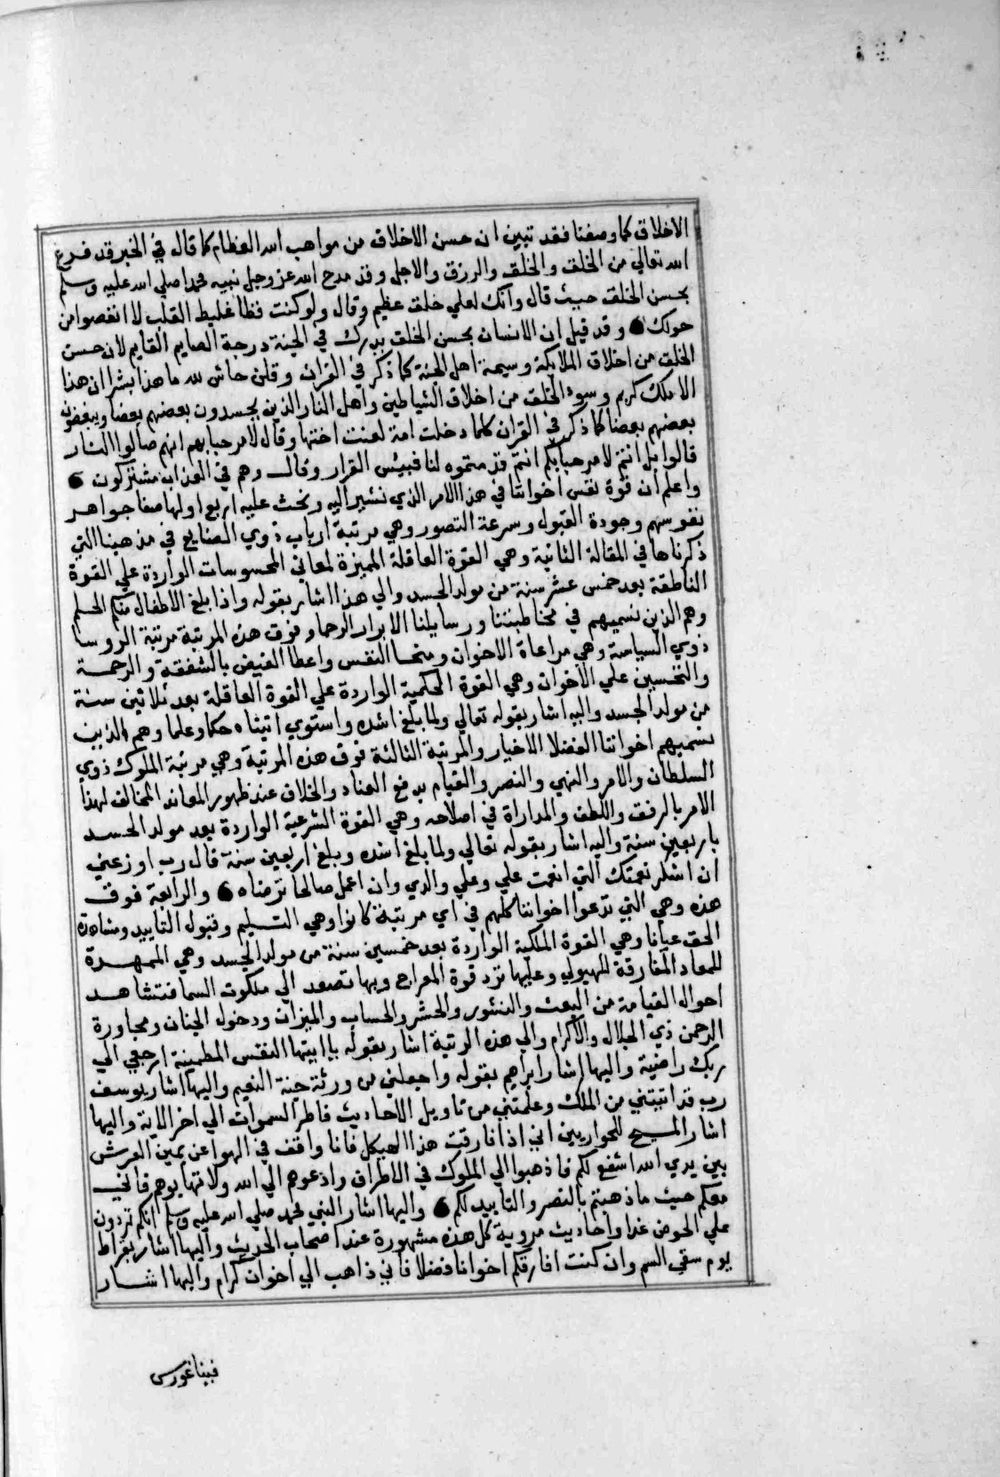 الاخلاق كما وصفنا فقد تبين ان حسن الاخلاق من مواهب الله العظام كما قال في الخبر قد فرغ
الله تعالي من الخلق والخلق والرزق والاجل وقد مدح الله عز وجل نبيه محمدا صلي الله عليه وسلم
بحسن الخلق حيث قال وانك لعلي خلق عظيم وقال ولو كنت فظا غليط القلب لا انفصوا من
حولك وقد قيل ان الانسان بحسن الخلق يدرك في الجنة درجة الصايم القايم لان حسن
الخلق من اخلاق الملايكة وسيمة اهل الجنة كما ذكر في القران وقلن حاش لله ما هذا بشرا ان هذا
الا ملك كريم وسوء الخلق من اخلاق الشياطين واهل النار الذين يحسدون بعضهم بعضا ويبغضون
بعضهم بعضا كما ذكر في القران كلما دخلت امة لعنت اختها وقال لا مرحبا بهم انهم صالوا النار
قالوا بل انتم لا مرحبا بكم انتم قدمتموه لنا فبيس القرار وقال وهم في العذاب مشتركون
واعلم ان قوة نفس اخواننا في هذا الامر الذي نشير اليه ونحث عليه اربع اولها صفا جواهر
نفوسهم وجودة القبول وسرعة التصور وهي مرتبة ارباب ذوي الصنايع في مدينتنا التي
ذكرناها في المقالة الثانية وهي القوة العاقلة المميزة لمعاني المحسوسات الواردة علي القوة
الناطقة بعد خمس عشر سنة من مولد الجسد والي هذا اشار بقوله واذا بلغ الاطفال منكم الحلم
وهم الذين نسميهم في مخاطبتنا ورسايلنا الابرار الرحما وفوق هذه المرتبة مرتبة الروسا
ذوي السياسة وهي مراعاة الاخوان وسخا النفس واعطا الفيض بالشفقة والرحمة
والتحسين علي الاخوان وهي القوة الحكمية الواردة علي القوة العاقلة بعد ثلاثين سنة
من مولد الجسد واليه اشار بقوله تعالي ولما بلغ اشده واستوي اتيناه حكما وعلما وهم الذين
نسميهم اخواننا الفضلا الاخيار والمرتبة الثالثة فوق هذه المرتبة وهي مرتبة الملوك ذوي
السلطان والامر والنهي والنصر والقيام بدفع العناد والخلاف عند ظهور المعاند المخالف لهذا
الامر بالرفق واللطف والمداراة في اصلاحه وهي القوة الشرعية الواردة بعد مولد الجسد
باربعين سنة واليه اشار بقوله تعالي ولما بلغ اشده وبلغ اربعين سنة قال رب اوزعني
ان اشكر نعمتك التي انعمت علي وعلي والدي وان اعمل صالحا ترضاه والرابعة فوق
هذه وهي التي ندعوا اخواننا كلهم في اي مرتبة كانوا وهي التسليم وقبول التاييد ومشاهدة
الحق عيانا وهي القوة الملكية الواردة بعد خمسين سنة من مولد الجسد وهي الممهدة
للمعاد المفارقة للهيولي وعليها ترد قوة المعراج وبها تصعد الي ملكوت السما فتشاهد
احوال القيامة من البعث والنشور والحشر والحساب والميزان ودخول الجنان ومجاورة
الرحمن ذي الجلال والاكرام والي هذه الرتبة اشار بقوله يا ايتها النفس المطمينة ارجعي الي
ربك راضية واليها اشار ابراهيم بقوله واجعلني من ورثة جنة النعيم واليها اشار يوسف
رب قد اتيتني من الملك وعلمتني من تاويل الاحاديث فاطر السموات الي اخر الاية واليها
اشار المسيح للحواريين اني اذا فارقت هذا الهيكل فانا واقف في الهوا عن يمين العرش
بين يدي الله اشفع لكم فاذهبوا الي الملوك في الاطراف وادعوهم الي الله ولا تهابوهم فاني
معكم حيث ما ذهبتم بالنصر والتاييد لكم واليها اشار النبي محمد صلي الله عليه وسلم انكم تردون
علي الحوض غدا واحاديث مروية كل هذه مشهورة عند اصحاب الحديث واليها اشار بقراط
يوم سقي السم وان كنت افارقكم اخوانا فضلا فاني ذاهب الي اخوان كرام واليها اشار
فيثاغورس